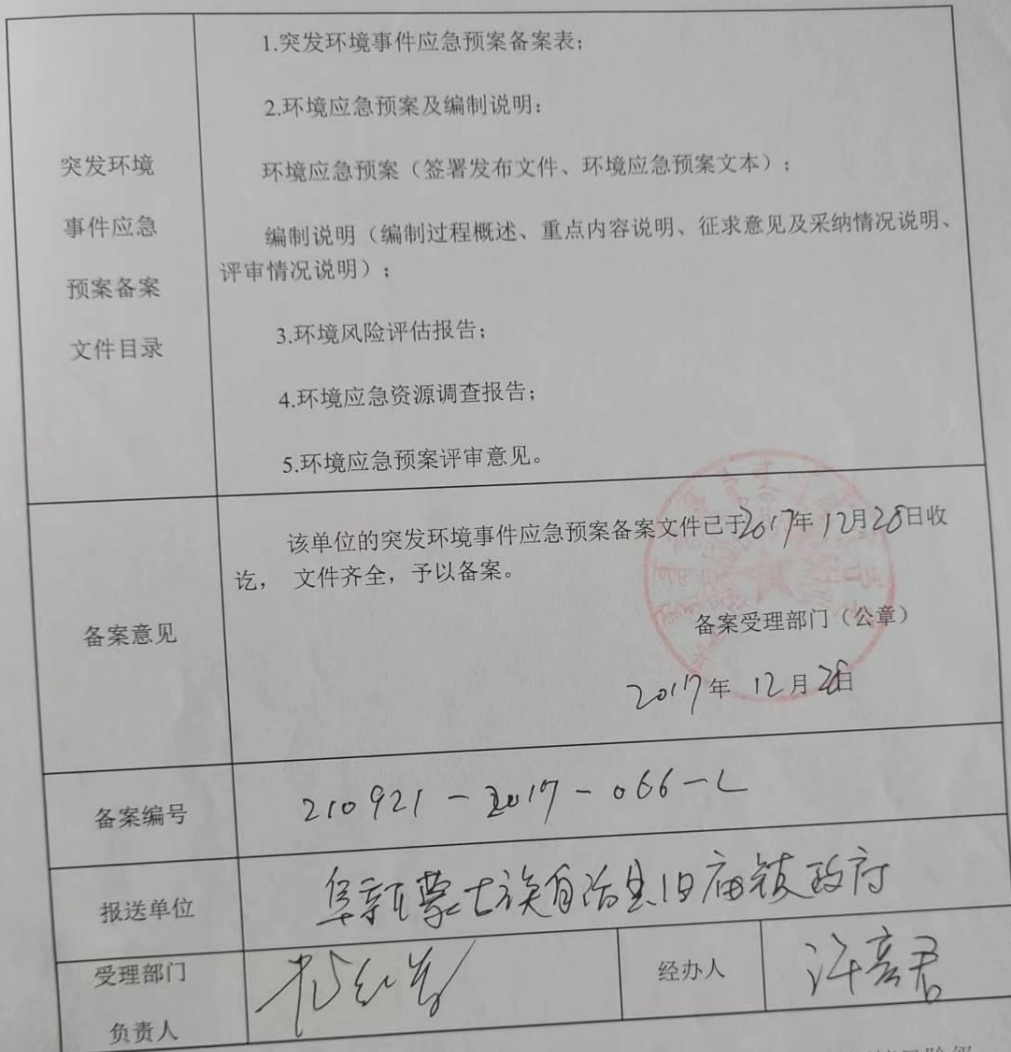 突发环境
事件应急
预案备案
文件目录
1.突发环境事件应急预案备案表;
2.环境应急预案及编制说明:
环境应急预案（签署发布文件、环境应急预案文本）;
编制说明（编制过程概述、重点内容说明、征求意见及采纳情况说明、
评审情况说明）;
3.环境风险评估报告;
4.环境应急资源调查报告;
5.环境应急预案评审意见。
备案意见
该单位的突发环境事件应急预案备案文件已于2017年12月28日收
讫， 文件齐全，予以备案。
备案受理部门（公章）
2017年 12月28日
备案编号
210921-2017-066-L
报送单位
阜新蒙古族自治县旧庙镇政府
受理部门
负责人
经办人
许彦君